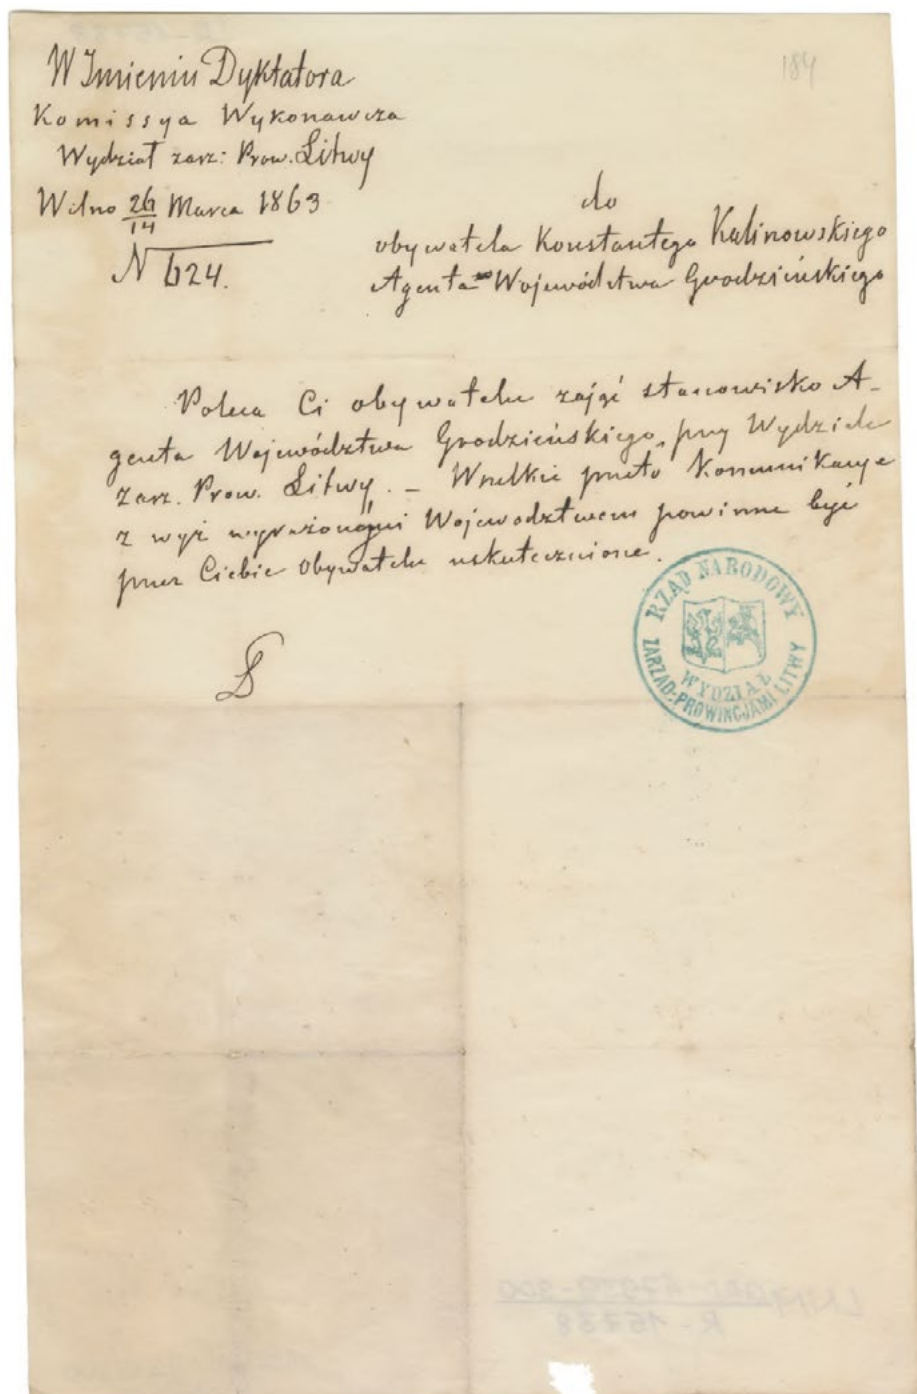 184
W Imieniu Dyktatora
Komissya Wykonawcza
Wydział zarz: Prow. Litwy
Wilno 26/14 Marca 1863
N 624.
do
obywatela Konstantego Kalinowskiego
Agenta Województwa Grodzieńskiego
Poleca Ci obywatelu zająć stanowisko A-
genta Województwa Grodzieńskiego, przy Wydziale
Zarz. Prow. Litwy. – Wszelkie przeto Komunikacye
z wyż wyrażonémi Województwem powinne być
przez Ciebie Obywatelu uskutecznione.
RZĄD NARODOWY
WYDZIAŁ
ZARZĄD: PROWINCJAMI LITWY